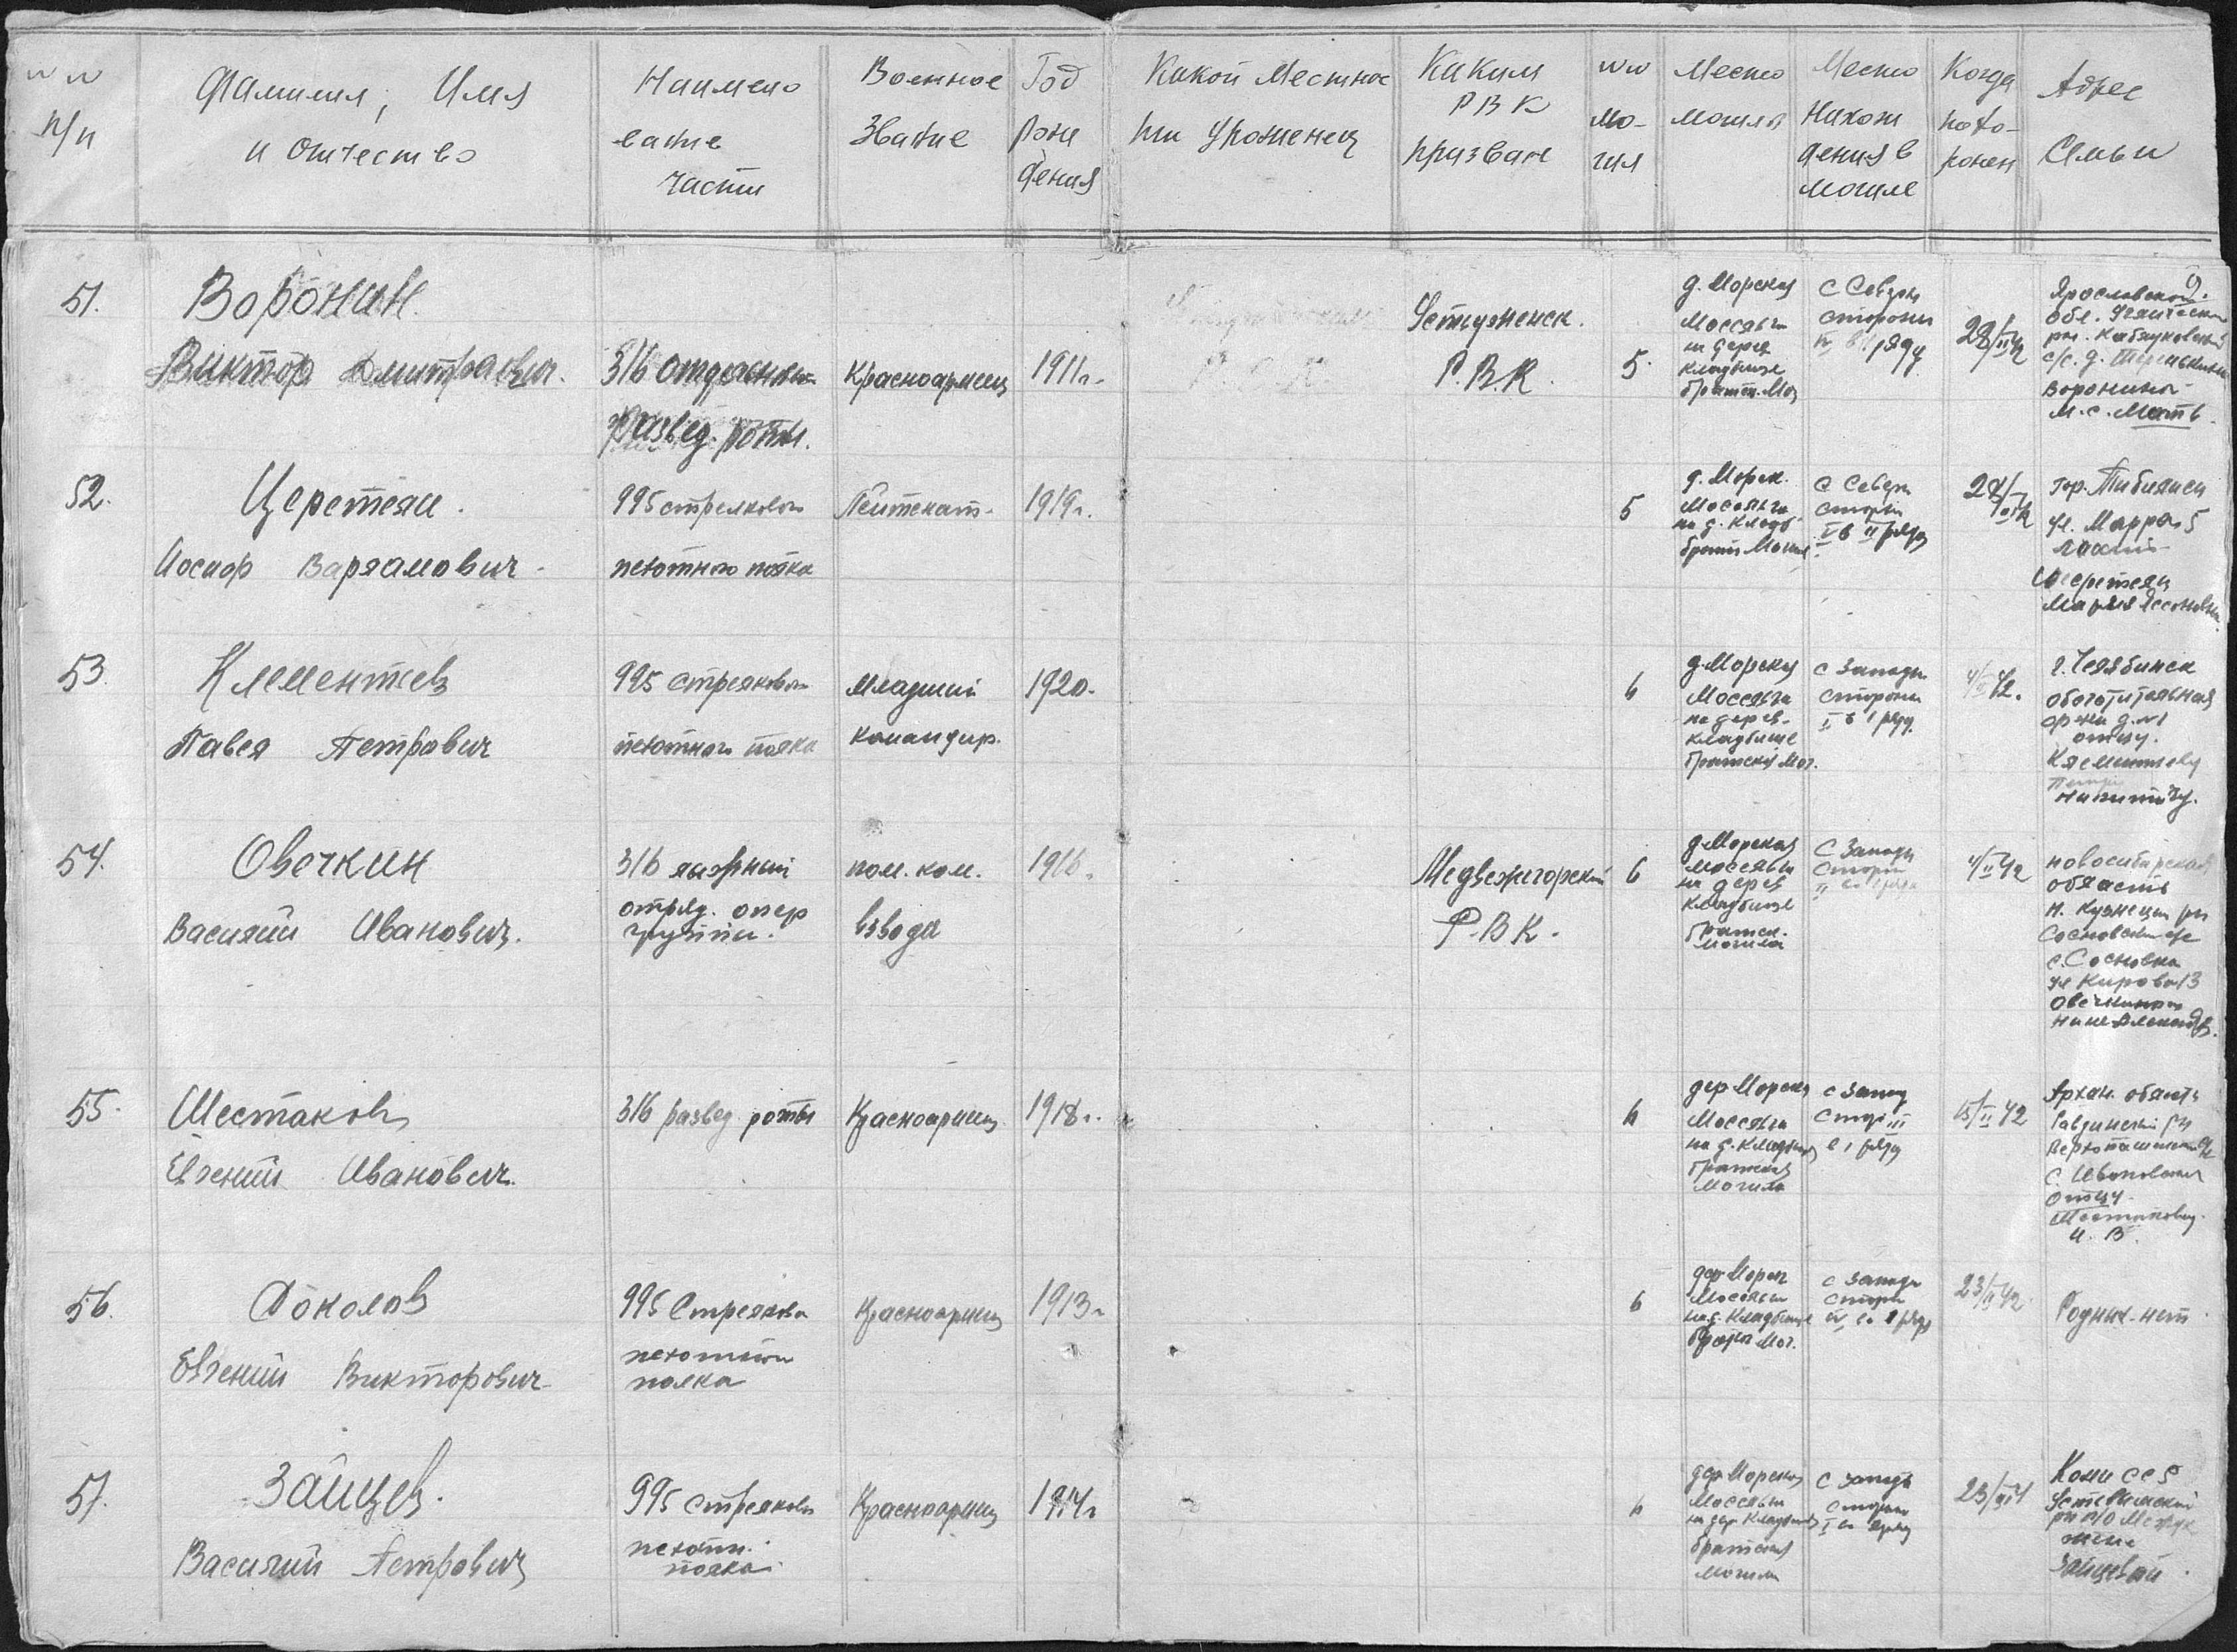 №№ п/п
Фамилия, Имя и Отчество
Наименование части
Военное Звание
Год рождения
Какой Местности Уроженец
Каким РВК призван
№№ могил
Место могилы
Место Нахождения в могиле
Когда похоронен
Адрес Семьи
9.
51.
Воронин
Виктор Дмитриевич.
316 отдельной
развед. роты.
Красноармеец
1911г.
Устюженск.
Р.В.К.
5
д. Морская
Моссельга
на дерев
кладбище
братск. Мог
с Северн
стороны
ряду
Ярославской
обл.
с/с. д.
Воронина
М.С. Мать.
52.
Церетели.
Иосиф Варламович.
995 стрелкового
пехотного полка
Лейтенант
1919г.
5
д. Морск.
Моссельга
на д. Кладб
братск Могил
с Северн
сторон
II ряду
гор. Тбилиси
ул. Марра 5
Церетели
Мария
53.
Клементьев
Павел Петрович
995 стрелкового
пехотного полка
Младший
командир.
1920.
6
д. Морская
Моссельга
на дерев.
кладбище
братская Мог.
с Запада
стороны
II в 1 ряду
4/II 42.
г. Челябинск
отцу.
Клементьеву
54.
Овечкин
Василий Иванович.
316 лыжный
отряд. опер
группы.
пом. ком.
взвода
1916.
Медвежегорский
Р.В.К.
6
д. Морская
Моссельга
на дерев
кладбище
братск.
могила
с Запада
сторон
4/II 42
Новосибирская
область
Н. Кузнецк рн
с. Сосновка
ул Кирова 13
55.
Шестаков
Евгений Иванович.
316 развед роты
Красноармеец
1918г.
6
дер Морская
Моссельга
на д. Кладбищ
братская
могила
с запад
стор III
в 1 ряду
15/II 42
Архан. область
отцу
Шестакову
И. В.
56.
Соколов
Евгений Викторович
995 Стрелкова
пехотного
полка
Красноармеец
1913г
6
дер Морск
Моссельги
на д. Кладбище
братск Мог.
с запада
сторон
23/II 42
Родных-нет
57.
Зайцев.
Василий Петрович
995 стрелкова
пехотн.
полка
Красноармеец
1914г
6
дер Морская
Моссельги
на дер Кладбище
братская
могила
с запада
сторон
Коми ССР
Устевымский
жене
Зайцевой